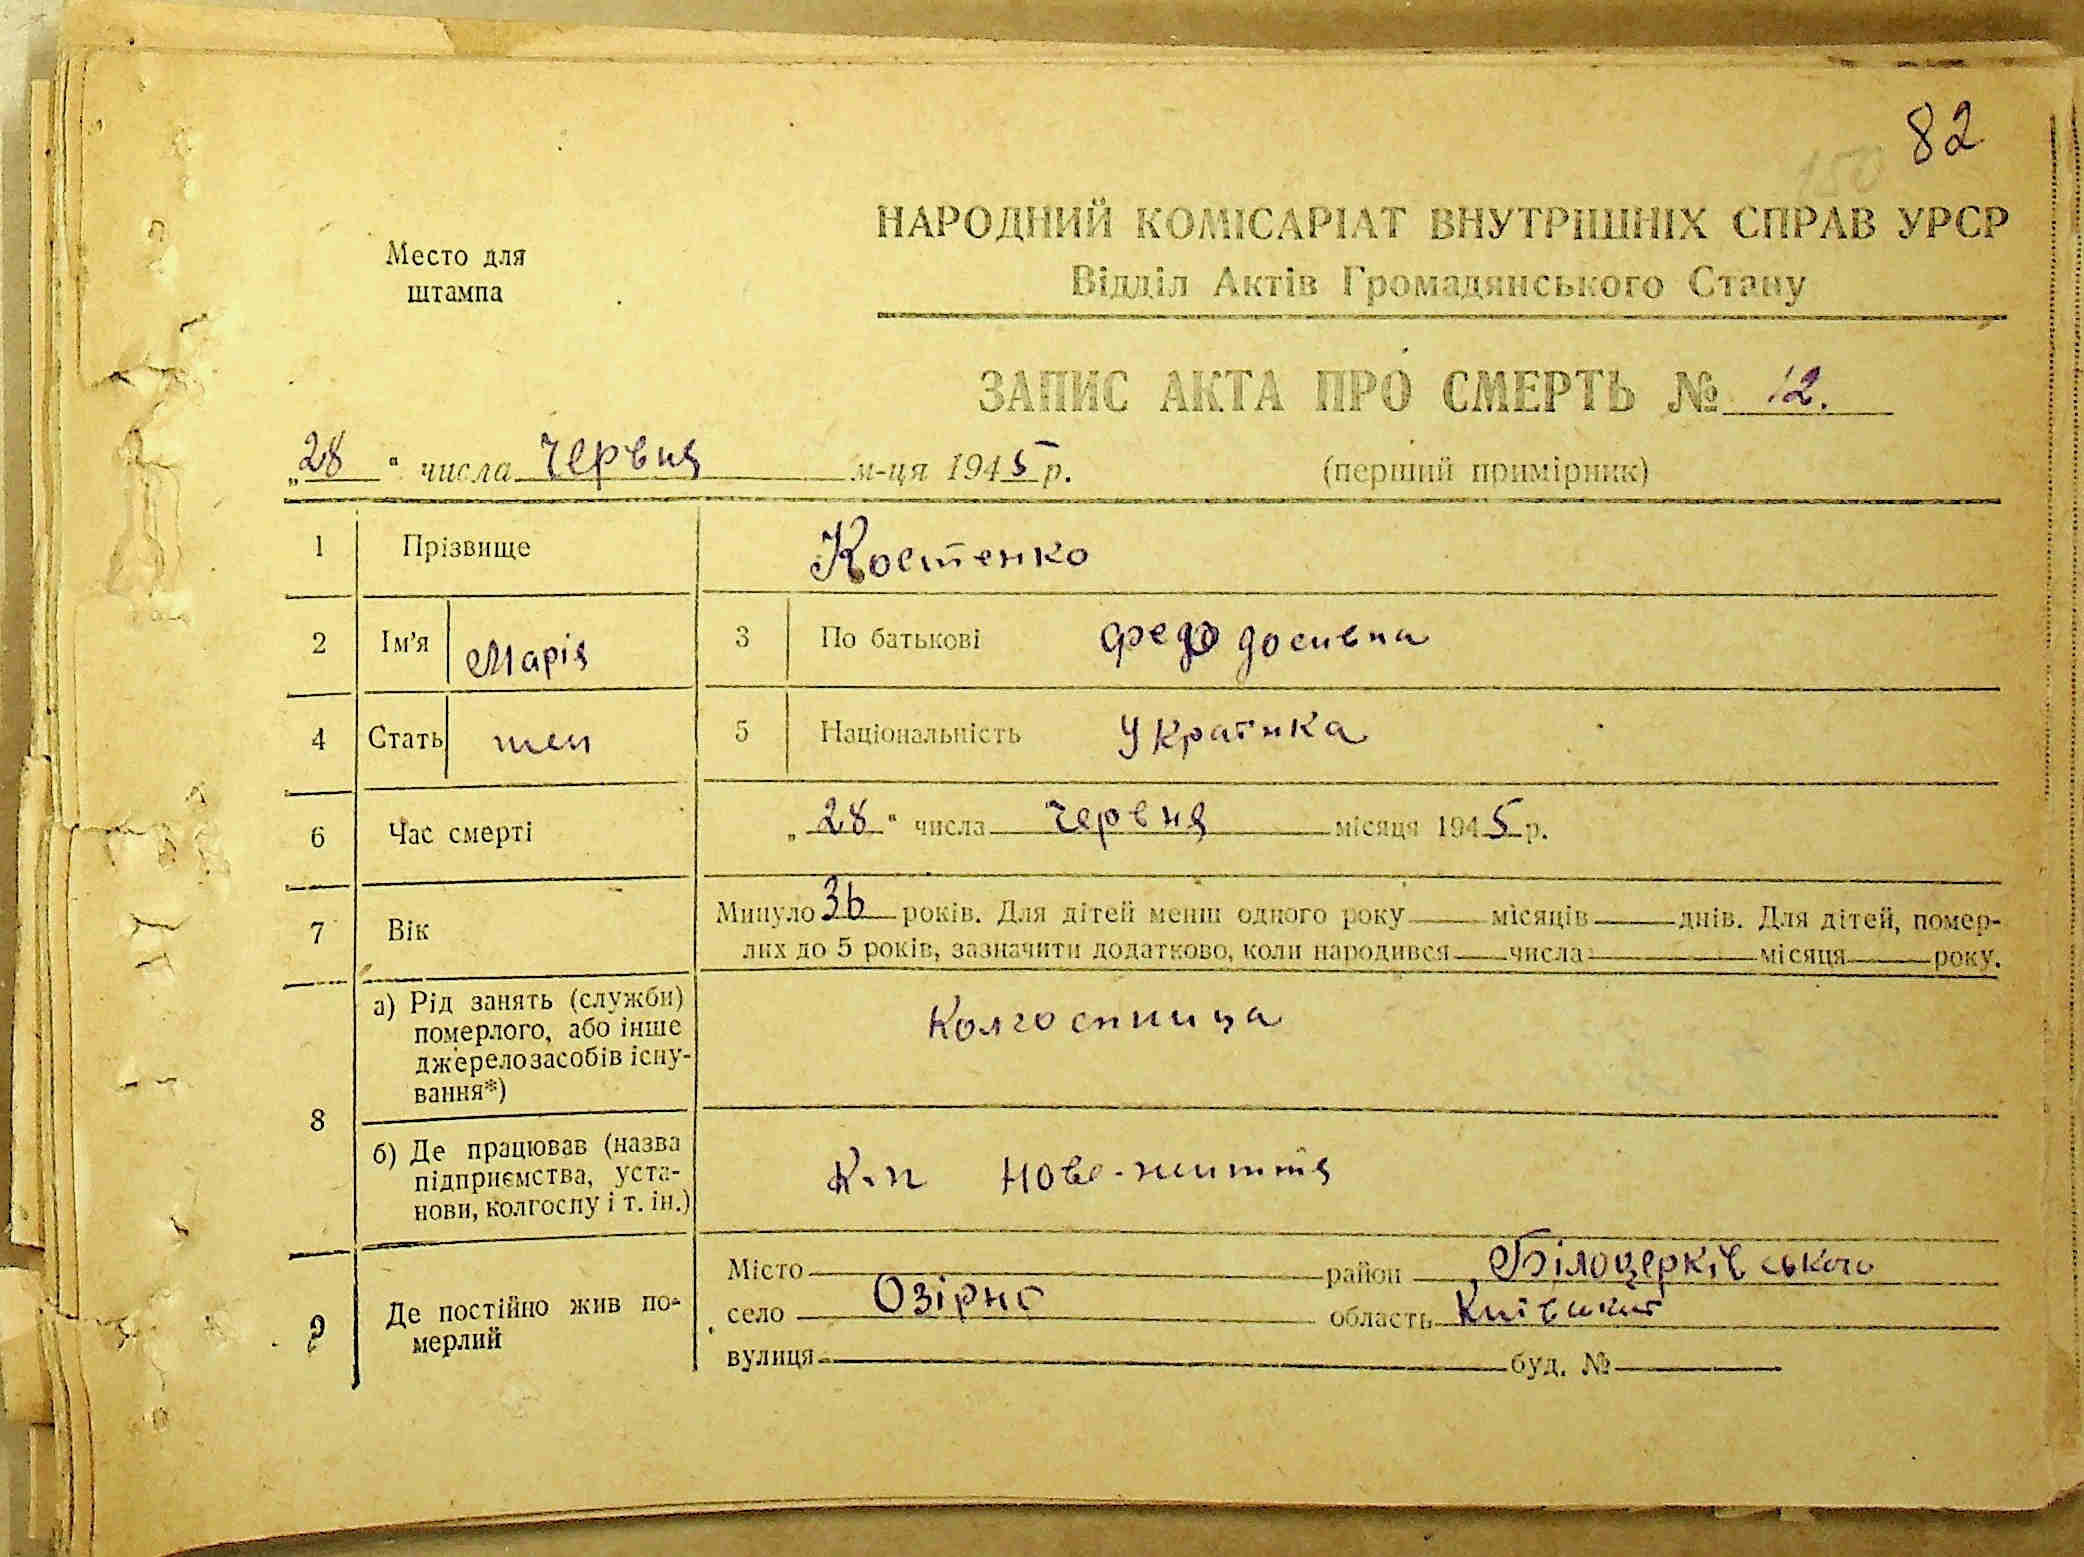 82
150
Место для
штампа
НАРОДНИЙ КОМІСАРІАТ ВНУТРІШНІХ СПРАВ УРСР
Відділ Актів Громадянського Стану
ЗАПИС АКТА ПРО СМЕРТЬ № 12.
„28“ числа червня м-ця 1945 р.
(перший примірник)
1 Прізвище Костенко
2 Ім'я Марія 3 По батькові Федодосивна
4 Стать жен 5 Національність Українка
6 Час смерті „28“ числа червня місяця 1945 р.
7 Вік Минуло 36 років. Для дітей менш одного року місяців днів. Для дітей, помер-
лих до 5 років, зазначити додатково, коли народився числа місяця року.
8 а) Рід занять (служби)
померлого, або інше
джерело засобів існу-
вання*)
Колгоспниця
б) Де працював (назва
підприємства, уста-
нови, колгоспу і т. ін.)
К-п Нове-життя
9 Де постійно жив по-
мерлий
Місто район Білоцерківського
село Озірно область Київської
вулиця буд. №